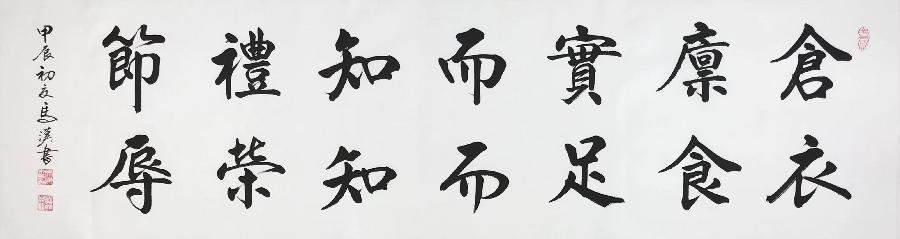 倉廩實而知禮節
衣食足而知榮辱
甲辰初夏馬漢書